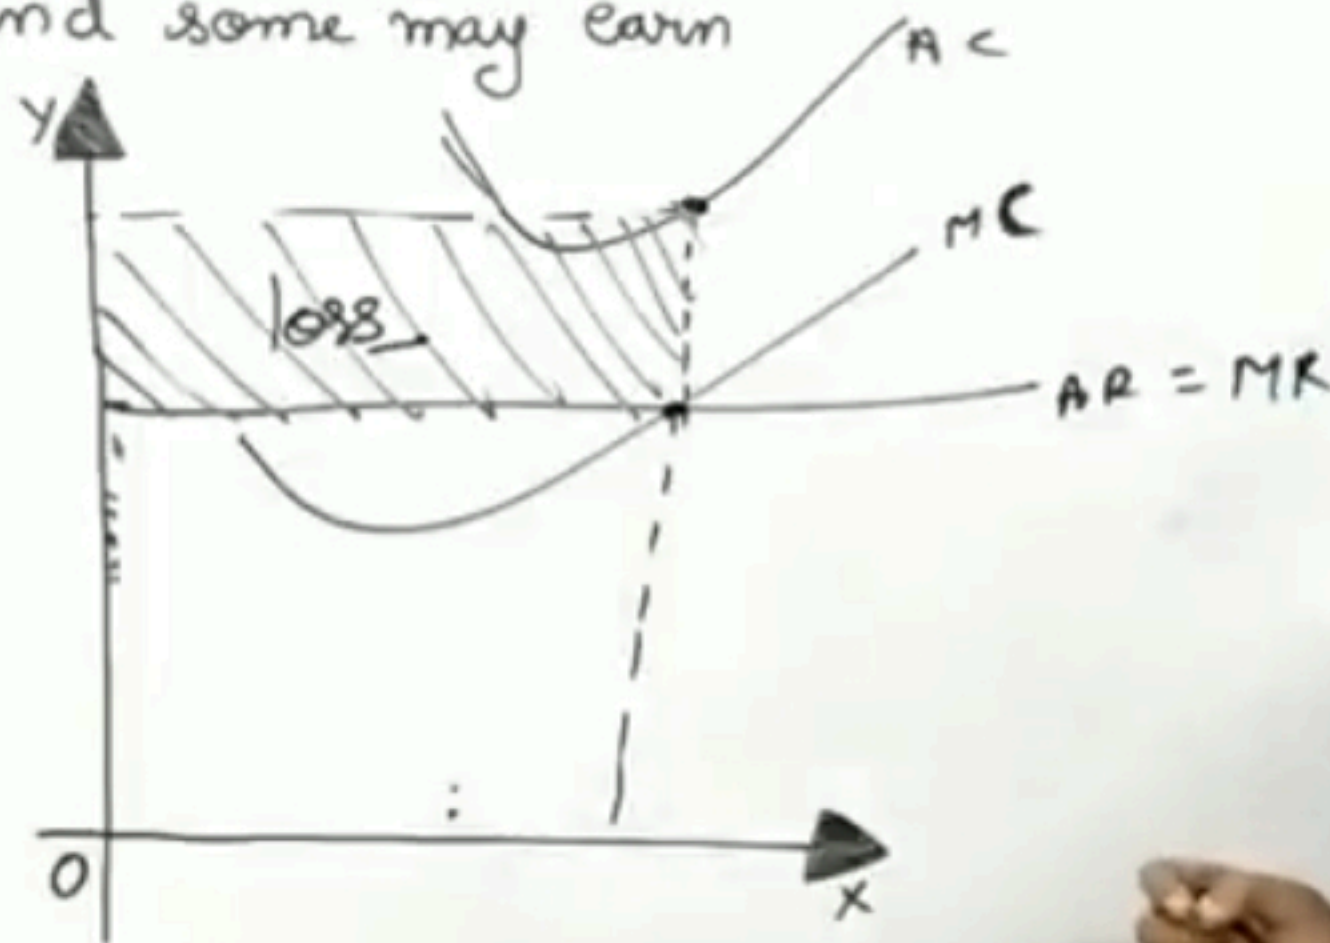 nd some may earn
AC
Y
MC
loss
AR = MR
O
X